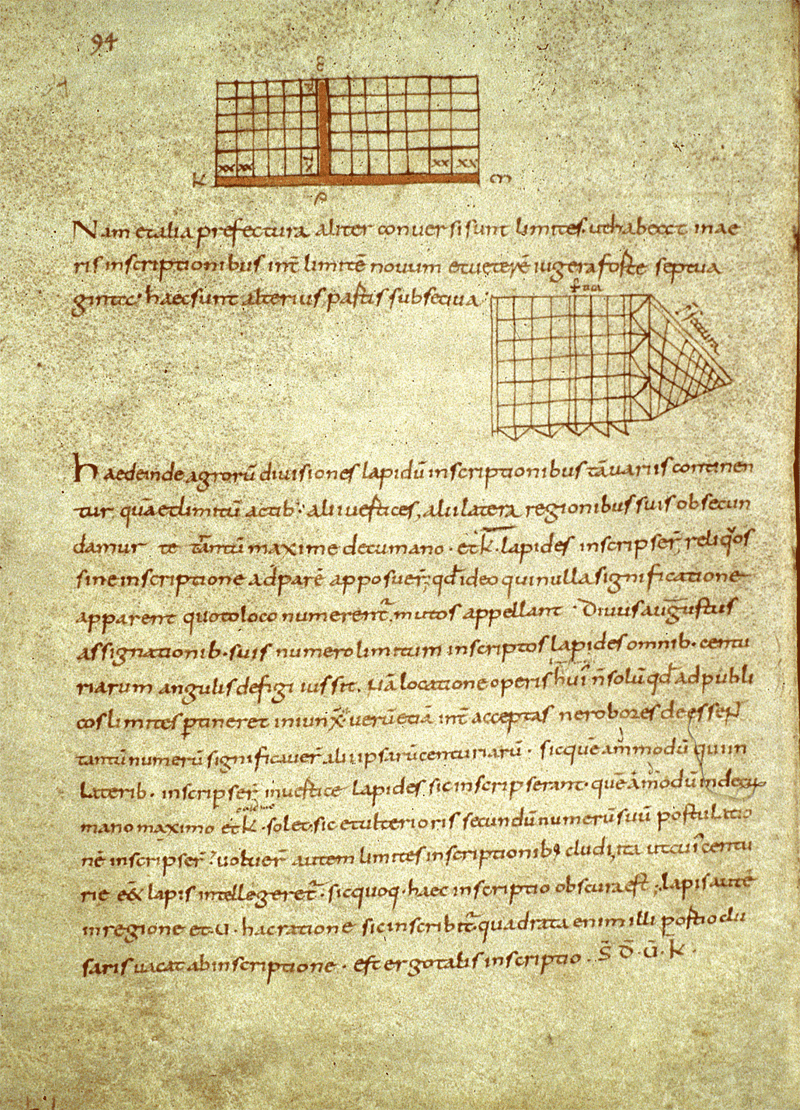 94
xx xx xx xx
K
Nam et alia prefectura aliter conversi sunt limites. ut habeat in ae
ris inscriptionibus int limitē novum et veterē iugera foste septua
ginta: haec sunt alterius pastus subseciua:
haec deinde agrorū diuisiones lapidū inscriptionibus tā uariis continen
tur quā et limitū actib: alii uestices, alii latera regionibus suis obsecun
damur te tantū maxime decumano. et k. lapides inscripser; reliq̇os
sine inscriptione ad parē apposuer; qd ideo qui nulla significatione
apparent quoto loco numerent. mutos appellant. Diuus augustus
assignationib. suis numero limitum inscriptos lapides omnib. centu
riarum angulis defigi iussit. nā locatione operis h̄ui n̄ solū qd ad publi
cos limites ptineret iniunx. uerū etiā int acceptas
tantū numerū significauer. alii ipsarū centuriarū. sic quēammodū qui in
laterib. inscripser in uestice lapides. sic inscripserant. quēam̄odū in decu
mano maximo et k. solet. sic et ulterioris secundū numerū suū postulatio
nē inscripser: uoluer autem limites inscriptionib; cludi, ita ut cuius centu
rie eēt lapis intellegeret. sic quoq. haec inscriptio obscura est; lapis autē
in regione et u. hac ratione sic inscribit. quadrata enim illi postio clu
saris uacat ab inscriptione. est ergo talis inscriptio. S̄ D̄ Ū K̄.